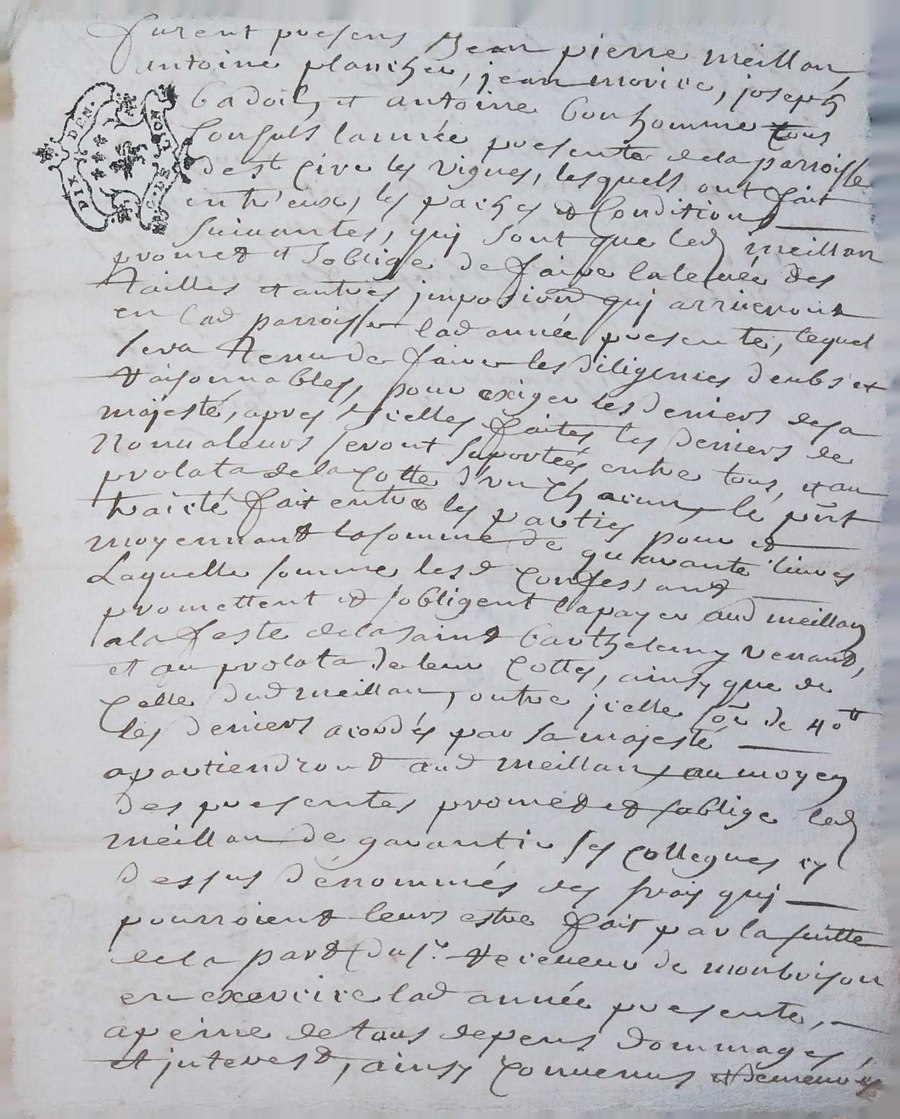 furent presens Jean pierre meillan
antoine planchet, jean morice, joseph
badoil, et antoine bonhomme tous
Consuls lannée presente dela parroisse
de st Cire les vignes, lesquels ont fait
entr'eux, les paches et Conditions
suivantes, quj sont que led meillan
promet et soblige de faire la levée des
tailles et autres jmpositions quj arriveront
en lad parroisse lad année presente, lequel
sera tenu de faire les diligences deubs et
raisonnables, pour exiger les deniers de sa
majesté, apres jcelles faites les deniers de
Nonvaleurs seront suportées entre tous, et au
prolata de la Cotte d'un Chacun, le pñt
traicté fait entre les parties pour et
moyennant la somme de quarante livres
Laquelle somme lesd Confessants
promettent et sobligent la payer aud meillan
a la feste de la saint barthelemy venant,
et au prolata de leur Cottes, ainsy que de
Celle dud meillan, outre jcelle so.e de 40tt
les deniers acordés par sa majesté
apartiendront aud meillan, au moyen
des presentes promet et soblige led
meillan de garantir ses Collegues cy
dessus dénommés des frais quj
pourroient leurs estre fait par la suitte
de la part du sr receveur de monbrison
en exercice lad année presente,
a peine de tous depens dommages,
et jnterest, ainsy Convenus et demeurés
DIX DEN.